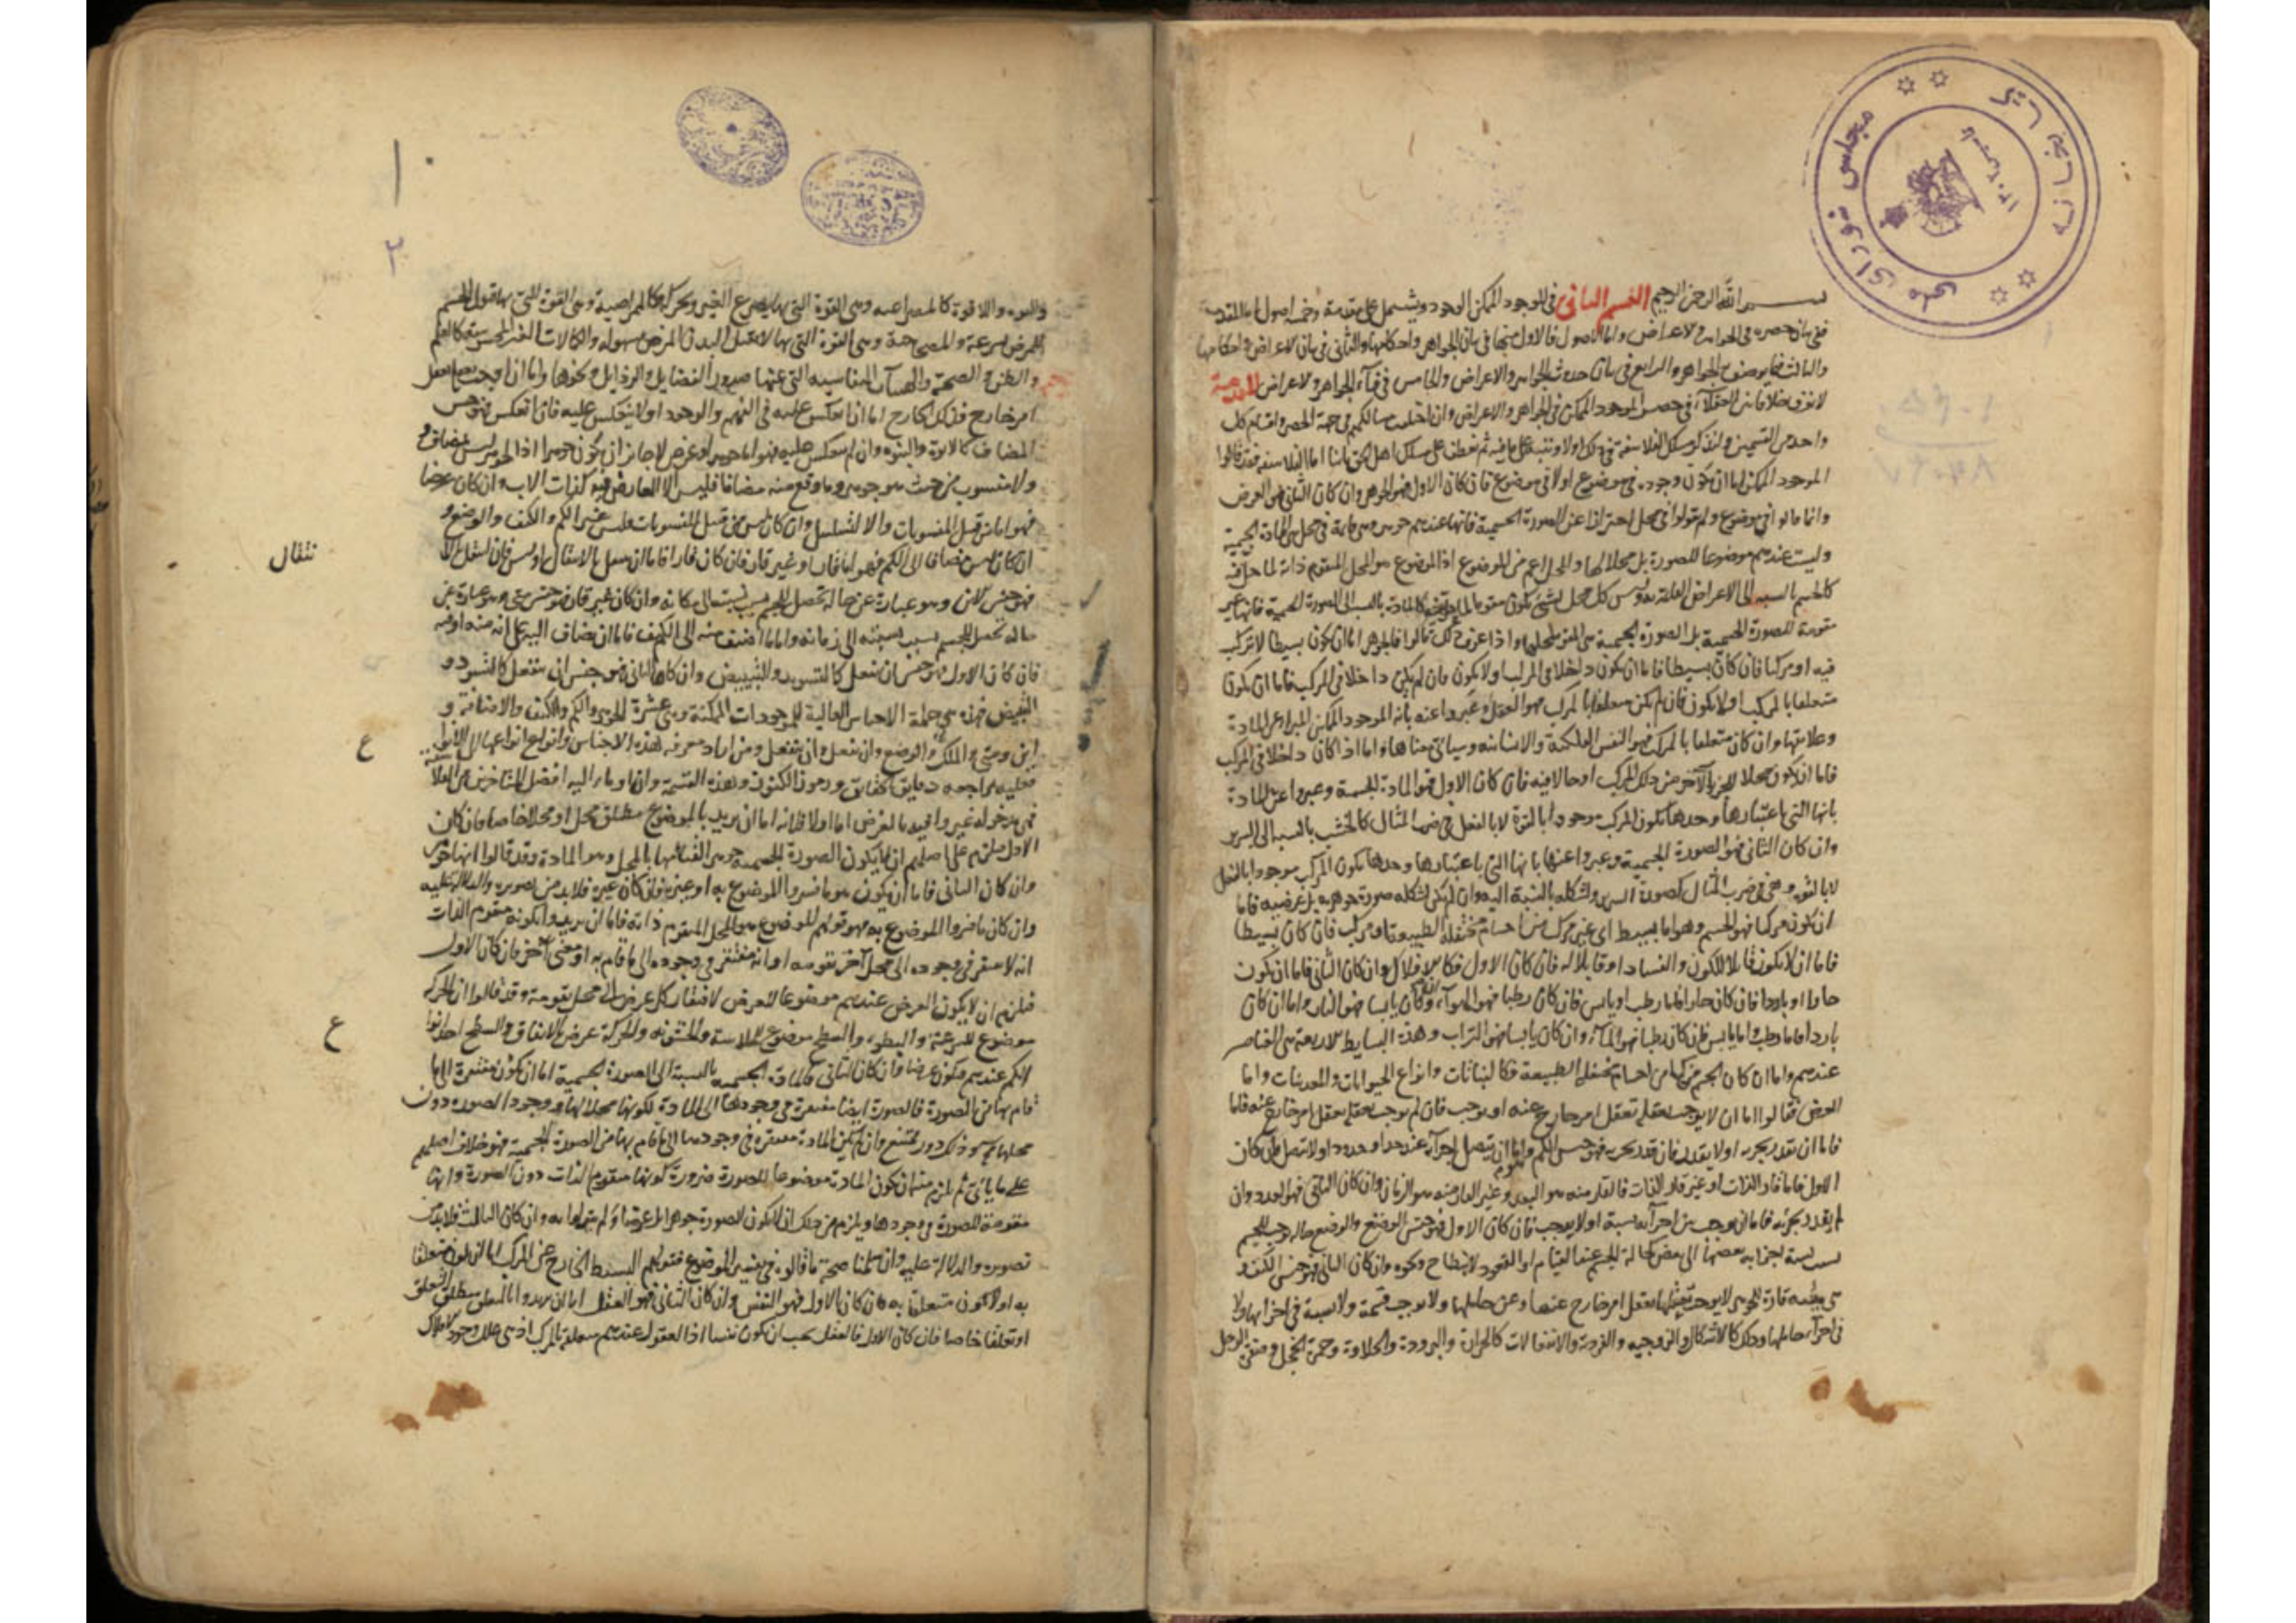 بسم الله الرحمن الرحيم القسم الثانى فى الموجود الممكن الوجود ويشتمل على مقدمة وخمسة اصول اما المقدمة
ففى بيان حصره فى الجواهر والاعراض واما الاصول فالاول منها فى بيان الجواهر واحكامها والثانى فى بيان الاعراض واحكامها
والثالث فيما يوصف به الجواهر والرابع فى بيان حدوث الجواهر والاعراض والخامس فى فناء الجواهر والاعراض المقدمة
لا نعرف خلافا بين العقلاء فى حصر الموجود الممكن فى الجواهر والاعراض وان اختلفت مسالكهم فى جهة الحصر واقسام كل
واحد من القسمين ولنذكر مسلك الفلاسفة فى ذلك اولا وننبه على ما فيه ثم نعطف على مسلك اهل الحق ثانيا اما الفلاسفة فقد قالوا
الموجود الممكن اما ان يكون وجوده فى موضوع اولا فى موضوع فان كان الاول فهو الجوهر وان كان الثانى فهو العرض
وانما قالوا فى موضوع ولم يقولوا فى محل احترازا عن الصورة الجسمية فانها عندهم جوهر وهى قائمة فى محل هى المادة الجسمية
وليست عندهم موضوعا للصورة بل محلا لها والمحل اعم من الموضوع اذ الموضوع هو المحل المتقوم ذاته لما حل فيه
كالجسم بالنسبة الى الاعراض القائمة به وليس كل محل لشىء يكون متقوما كالمادة بالنسبة الى الصورة الجسمية فانها غير
متقومة للصورة الجسمية بل الصورة الجسمية هى المقومة لمحلها واذا عرف ذلك قالوا فالجوهر اما ان يكون بسيطا لا تركب
فيه او مركبا فان كان بسيطا فاما ان يكون داخلا فى المركب اولا يكون فان لم يكن داخلا فى المركب فاما ان يكون
متعلقا بالمركب اولا يكون فان لم يكن متعلقا بالمركب فهو العقل وعبروا عنه بانه الموجود الممكن المبرا عن المادة
وعلائقها وان كان متعلقا بالمركب فهو النفس الفلكية والانسانية وسياتى معناها واما اذا كان داخلا فى المركب
فاما ان يكون محلا للجزء الآخر من ذلك المركب او حالا فيه فان كان الاول فهو المادة الجسمية وعبروا عن المادة
بانها التى باعتبارها وحدها يكون المركب موجودا بالقوة لا بالفعل فى ضرب المثال كالخشب بالنسبة الى السرير
وان كان الثانى فهو الصورة الجسمية وعبروا عنها بانها التى باعتبارها وحدها يكون المركب موجودا بالفعل
لا بالقوة وهى فى ضرب المثال كصورة السرير وشكله بالنسبة اليه وان لم يكن شكله صورة جوهرية بل عرضية فاما
ان يكون مركبا فهو الجسم وهو اما بسيط اى غير مركب من اجسام مختلفة الطبيعة او مركب فان كان بسيطا
فاما ان لا يكون قابلا للكون والفساد او قابلا له فان كان الاول فكالافلاك وان كان الثانى فاما ان يكون
حارا او باردا فان كان حارا فاما رطب او يابس فان كان رطبا فهو الهواء وان كان يابسا فهو النار واما ان كان
باردا فاما رطب واما يابس فان كان رطبا فهو الماء وان كان يابسا فهو التراب وهذه البسايط الاربعة هى العناصر
عندهم واما ان كان الجسم مركبا من اجسام مختلفة الطبيعة فكالنباتات وانواع الحيوانات والمعدنيات واما
العرض فقالوا اما ان لا يوجب تعقله تعقل امر خارج عنه او يوجب فان لم يوجب تعقله تعقل امر خارج عنه فاما
فاما ان يقدر بجزء اولا يقدر فان قدر بجزء فهو جنس الكم واما ان يتصل اجزاؤه عند حد او حدود اولا يتصل فان كان
الاول فاما قار الذات او غير قار الذات فالقار منه هو البعد وغير القار منه هو الزمان وان كان الثانى فهو العدد وان
لم يقدر بجزئه فاما ان يوجب بين اجزائه نسبة اولا يوجب فان كان الاول فهو جنس الوضع والوضع حالة توجب للجسم
بسبب نسبة اجزائه بعضها الى بعض كحالة الجسم عند القيام او القعود او الانبطاح ونحوه وان كان الثانى فهو جنس الكيف و
هى هيئة قارة للجوهر لا يوجب تعقلها تعقل امر خارج عنها وعن حاملها ولا يوجب قسمة ولا نسبة فى اجزائها ولا
فى اجزاء حاملها وذلك كالاشكال والزوجية والفردية والانفعالات كالحرارة والبرودة والحلاوة وحمرة الخجل وصفرة الوجل
والقوة واللا قوة كالمصراعية وهى القوة التى بها يصرع الغير وكالممراضية وهى القوة التى بها يقبل الجسم
المرض بسرعة والمصحاحة وهى القوة التى بها لا يقبل البدن المرض بسهولة والكمالات الغير المحسوسة كالعلم
والظن والصحة والهيئات النفسانية التى عنها صدور الفضايل والرذايل ونحوها واما ان اوجب تعقله تعقل
امر خارج فذلك الخارج اما ان انعكس عليه فى الفهم والوجود اولا ينعكس عليه فان انعكس فهو جنس
المضاف كالابوة والبنوة وان لم ينعكس عليه فهو اما جوهر او عرض لا جائز ان يكون جوهرا اذ الجوهر ليس مضافا
ولا منسوب من حيث هو جوهر وما وقع منه مضافا فليس الا العارض فيه كذات الاب وان كان عرضا
فهو اما من قبيل المنسوبات والا لتسلسل وان كان ليس من قبيل المنسوبات فليس غير الكم والكيف والوضع و
ان كان مضافا الى الكم فهو اما قار او غير قار فان كان قارا فاما ان ينتقل بالانتقال او ليس فان انتقل
نتقال
فهو جنس الاين وهو عبارة عن حالة تحصل للجسم بسبب نسبته الى مكانه وان كان غير قار فهو جنس متى وهو عبارة عن
حالة تحصل للجسم بسبب نسبته الى زمانه واما ما اضيف منه الى الكيف فاما ان يضاف اليه على انه منه او فيه
فان كان الاول فهو جنس ان يفعل كالتسويد والتبييض وان كان الثانى فهو جنس ان ينفعل كالتسود و
التبيض فهذه هى جملة الاجناس العالية للموجودات الممكنة وهى عشرة الجوهر والكم والكيف والاضافة و
اين ومتى والملك والوضع وان يفعل وان ينفعل ومن اراد معرفة هذه الاجناس وانواع انواعها
ع
فعليه بمراجعة دقايق الحقايق ورموز الكنوز وهذه القسمة وان اوماء اليه افضل المتاخرين من الفلاسفة
فهى مدخولة غير وافية بالغرض اما اولا فلانه اما ان يريد بالموضوع مطلق محل او محلا خاصا فان كان
الاول فيلزم على اصلهم ان لا يكون الصورة الجسمية جوهرا لقيامها بالمحل وهو المادة وقد قالوا انها جوهر
وان كان الثانى فاما ان يكون هو ما فسروا الموضوع به او غيره فان كان غيره فلابد من تصويره والدلالة عليه
وان كان ما فسروا الموضوع به فهو قولهم الموضوع هو المحل المتقوم ذاته فاما ان يريدوا بكونه متقوم الذات
انه لا يفتقر فى وجوده الى محل آخر يقومه او انه مفتقر فى وجوده الى ما قام به او معنى آخر فان كان الاول
فيلزم ان لا يكون العرض عندهم موضوعا للعرض لافتقار كل عرض الى محل يقومه وقد قالوا ان الحركة
موضوع للسرعة والبطوء والسطح موضوع للملاسة والخشونة والحركة عرض بالاتفاق والسطح احد انواع
ع
الكم عندهم فيكون عرضا وان كان الثانى فالمادة الجسمية بالنسبة الى الصورة الجسمية اما ان يكون مفتقرة الى ما
قام بها من الصورة فالصورة ايضا مفتقرة فى وجودها الى المادة لكونها محلا لها ووجود الصورة دون
محلها وذلك دور ممتنع وان لم يكن المادة مفتقرة فى وجودها الى ما قام بها من الصورة الجسمية فهو خلاف اصلهم
على ما ياتى ثم يلزم منه ان يكون المادة موضوعا للصورة ضرورة كونها متقومة الذات دون الصورة وانها
مقومة للصورة فى وجودها ويلزم من ذلك ان لا يكون الصورة جوهرا بل عرضا ولم يقولوا به وان كان الثالث فلابد من
تصويره والدلالة عليه وان سلمنا صحة ما قالوه فى تفسير الموضوع فقولهم البسيط الخارج عن المركب اما ان يكون متعلقا
به اولا يكون متعلقا به فان كان الاول فهو النفس وان كان الثانى فهو العقل اما ان يريدوا بالتعلق مطلق التعلق
او تعلقا خاصا فان كان الاول فالعقل يجب ان يكون نفسا اذ العقول عندهم متعلقة بالمركب اذ هى علل وجود الافلاك